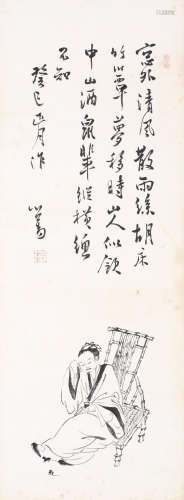 窓外清風散雨絲胡床
竹簟夢移時山人似飲
中山酒鼠輩縱橫總
不知
癸巳正月作
心畬